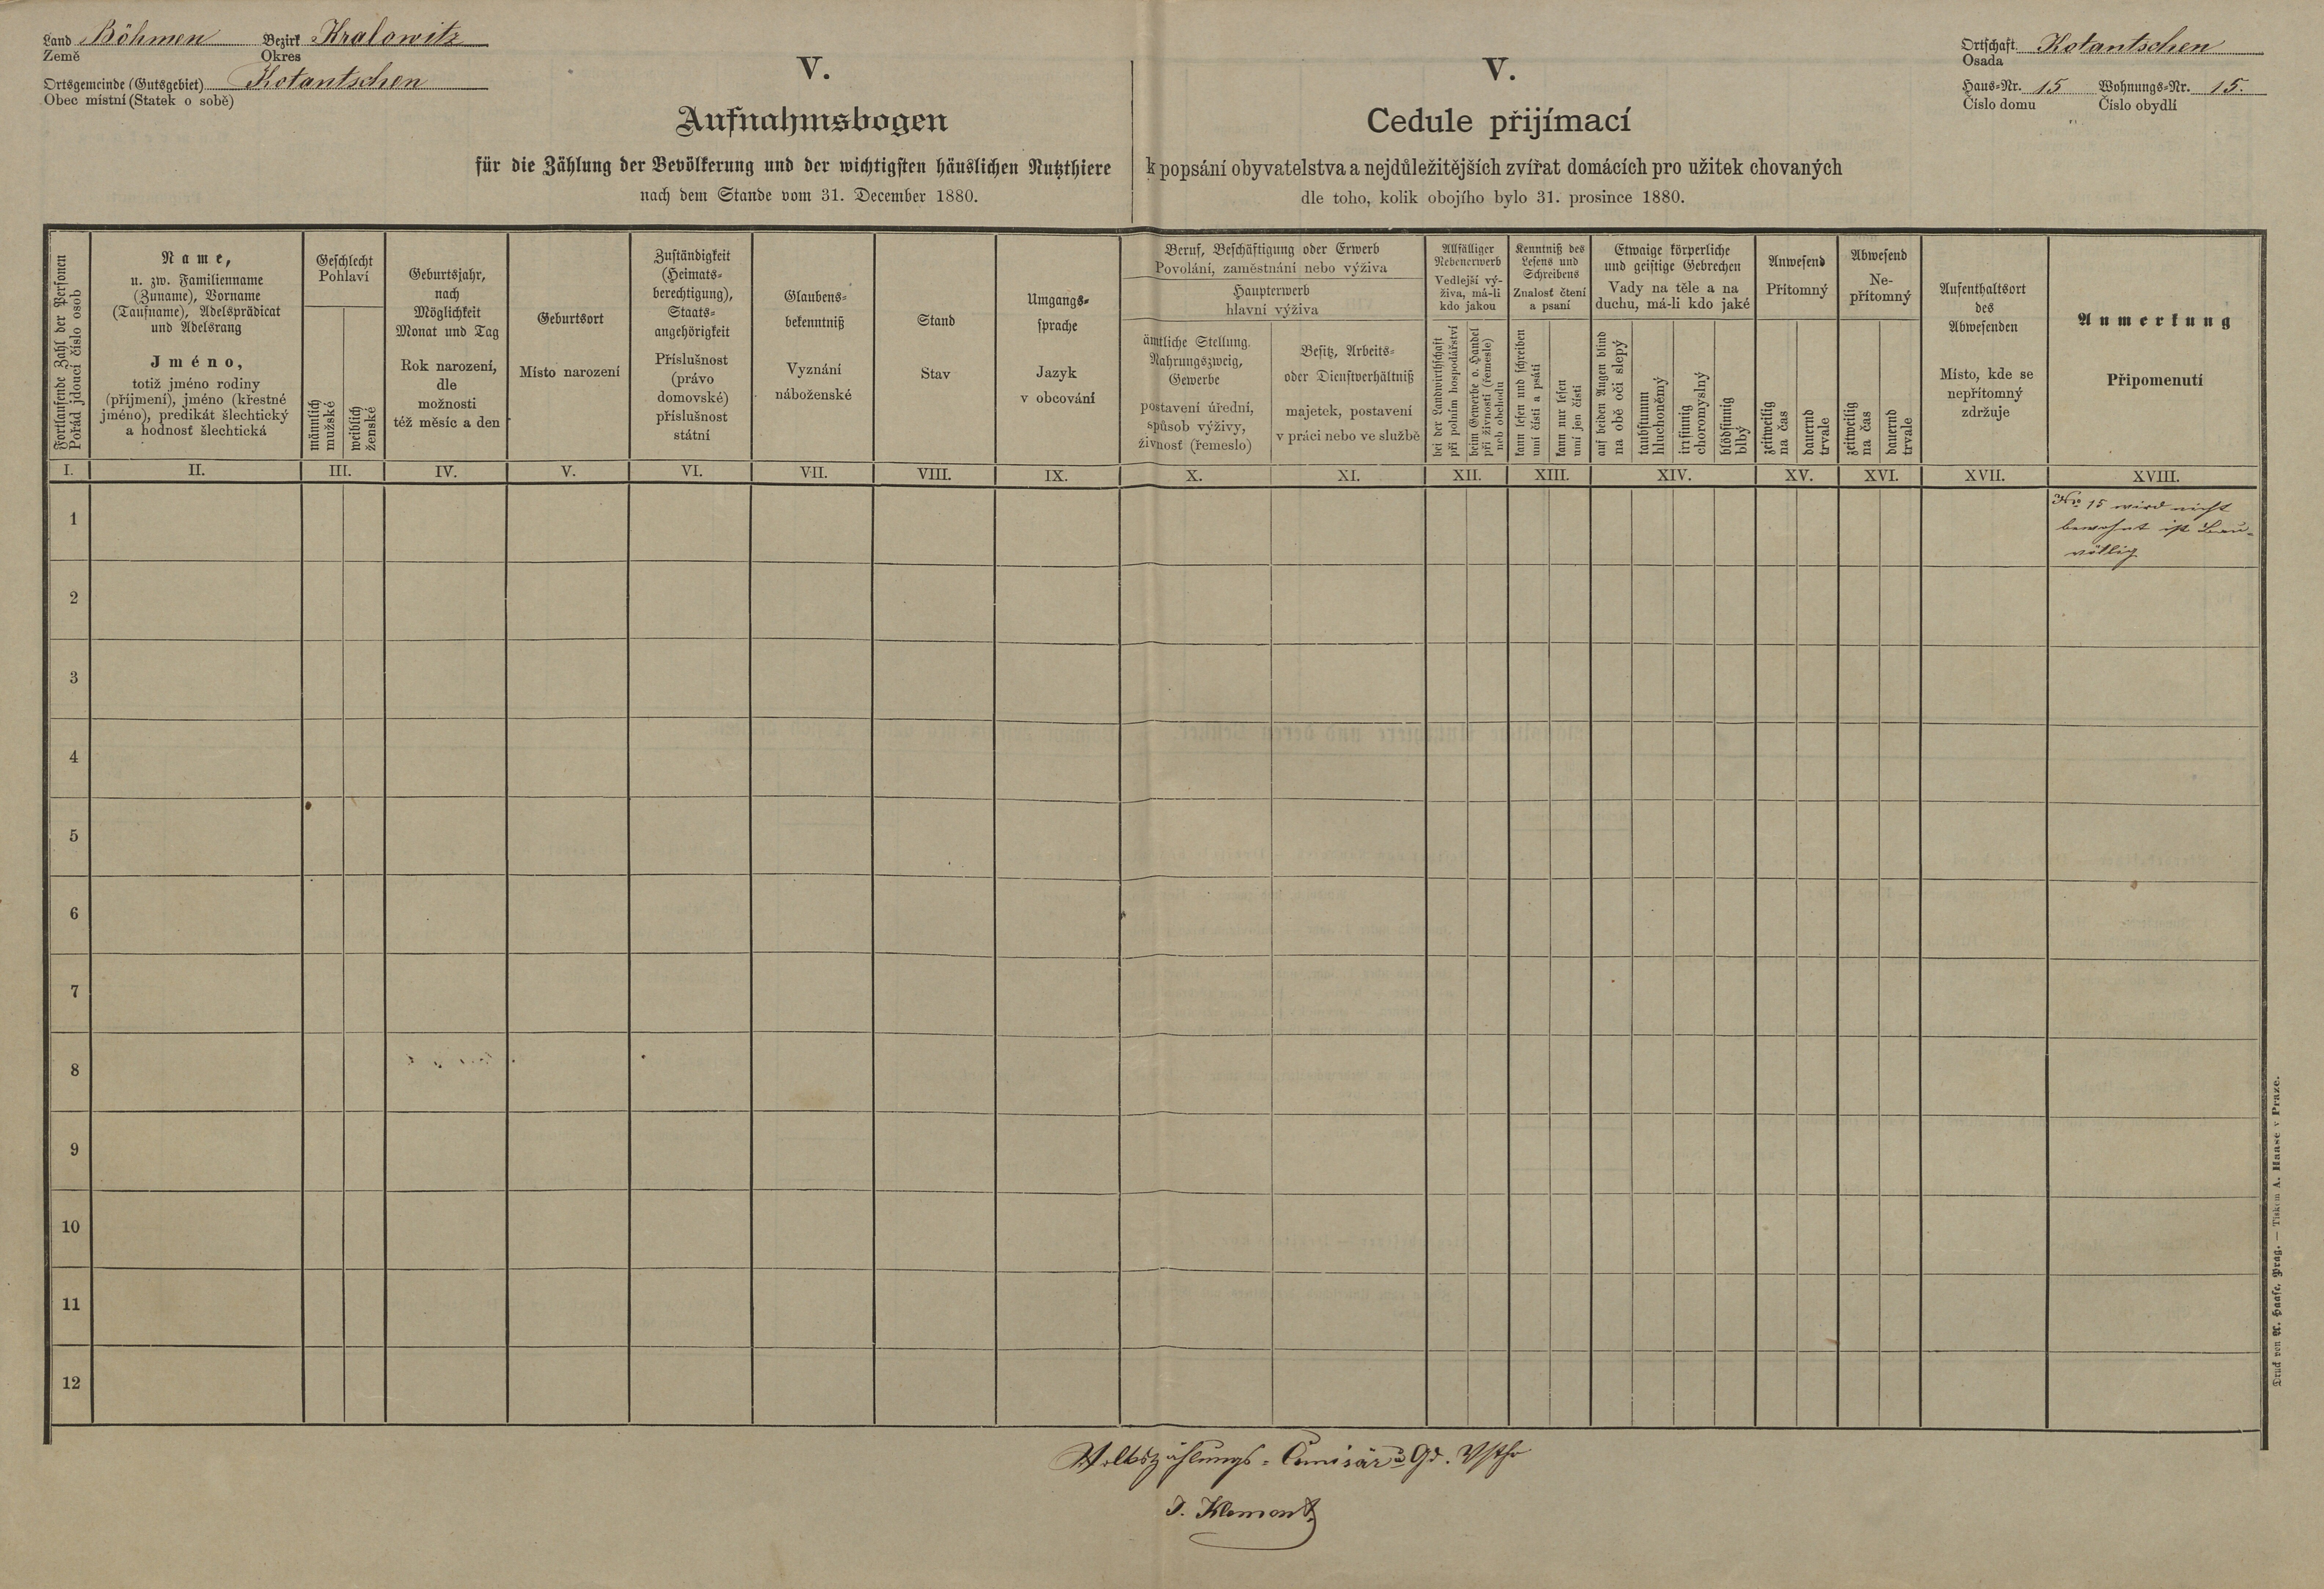 Land Böhmen Bezirk Kralowitz
Země Okres
Ortsgemeinde (Gutsgebiet) Kotantschen
Obec místní (Statek o sobě)
V.
Aufnahmsbogen
für die Zählung der Bevölkerung und der wichtigsten häuslichen Nutzthiere
nach dem Stande vom 31. December 1880.
V.
Cedule přijímací
k popsání obyvatelstva a nejdůležitějších zvířat domácích pro užitek chovaných
dle toho, kolik obojího bylo 31. prosince 1880.
Ortschaft Kotantschen
Osada
Haus-Nr. 15 Wohnungs-Nr. 15.
Číslo domu Číslo obydlí
Fortlaufende Zahl der Personen
Pořád jdoucí číslo osob
Name,
u. zw. Familienname
(Zuname), Vorname
(Taufname), Adelsprädicat
und Adelsrang
Jméno,
totiž jméno rodiny
(příjmení), jméno (křestné
jméno), predikát šlechtický
a hodnosť šlechtická
Geschlecht
Pohlaví
männlich
mužské
weiblich
ženské
Geburtsjahr,
nach
Möglichkeit
Monat und Tag
Rok narození,
dle
možnosti
též měsíc a den
Geburtsort
Místo narození
Zuständigkeit
(Heimats-
berechtigung),
Staats-
angehörigkeit
Příslušnost
(právo
domovské)
příslušnost
státní
Glaubens-
bekenntniß
Vyznání
náboženské
Stand
Stav
Umgangs-
sprache
Jazyk
v obcování
Beruf, Beschäftigung oder Erwerb
Povolání, zaměstnání nebo výživa
Haupterwerb
hlavní výživa
ämtliche Stellung.
Nahrungszweig,
Gewerbe
postavení úřední,
spůsob výživy,
živnosť (řemeslo)
Besitz, Arbeits-
oder Dienstverhältniß
majetek, postavení
v práci nebo ve službě
Allfälliger
Nebenerwerb
Vedlejší vý-
živa, má-li
kdo jakou
bei der Landwirthschaft
při polním hospodářství
beim Gewerbe o. Handel
při živnosti (řemesle)
neb obchodu
Kenntniß des
Lesens und
Schreibens
Znalosť čtení
a psaní
kann lesen und schreiben
umí čísti a psáti
kann nur lesen
umí jen čísti
Etwaige körperliche
und geistige Gebrechen
Vady na těle a na
duchu, má-li kdo jaké
auf beiden Augen blind
na obě oči slepý
taubstumm
hluchoněmý
irrsinnig
choromyslný
blödsinnig
blbý
Anwesend
Přítomný
zeitweilig
na čas
dauernd
trvale
Abwesend
Ne-
přítomný
zeitweilig
na čas
dauernd
trvale
Aufenthaltsort
des
Abwesenden
Místo, kde se
nepřítomný
zdržuje
Anmerkung
Připomenutí
I. II. III. IV. V. VI. VII. VIII. IX. X. XI. XII. XIII. XIV. XV. XVI. XVII. XVIII.
1
No 15 wird nicht
bewohnt ist Bau-
völlig
2
3
4
5
6
7
8
9
10
11
12
Volkszählungs-Comisär u Gd. Vsthr
J. Klement
Druck von A. Haase, Prag. — Tiskem A. Haase v Praze.